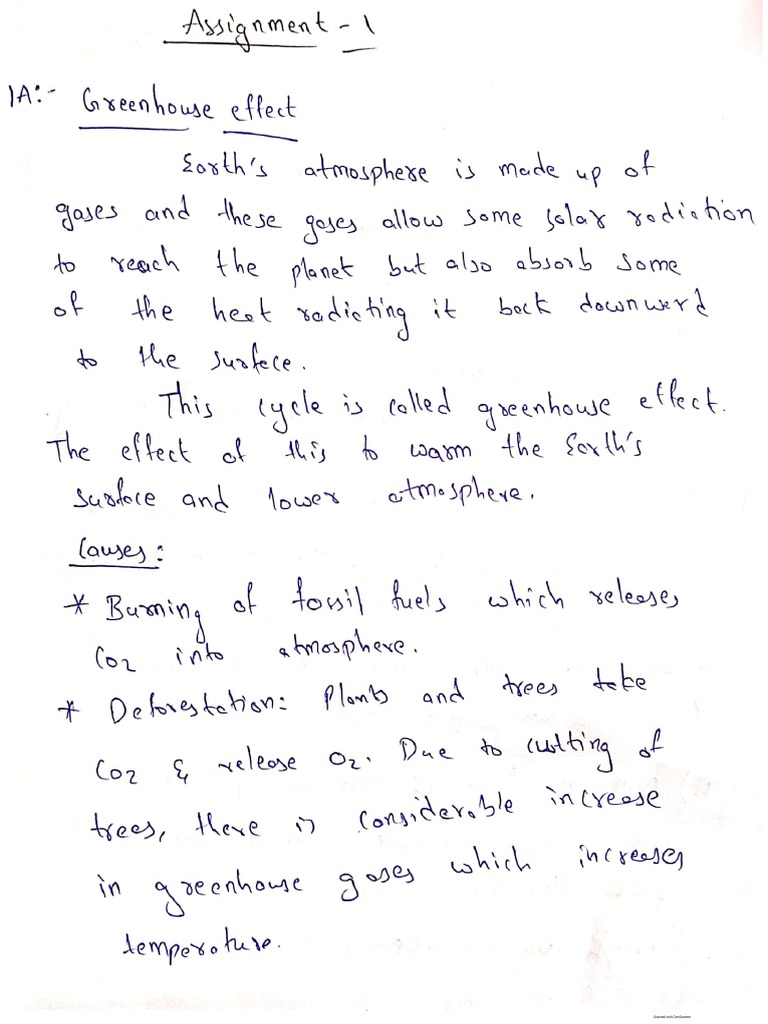 Assignment - 1
1A:- Greenhouse effect
Earth's atmosphere is made up of
gases and these gases allow some solar radiation
to reach the planet but also absorb some
of the heat radiating it back downward
to the surface.
This cycle is called greenhouse effect.
The effect of this to warm the Earth's
surface and lower atmosphere.
Causes:
* Burning of fossil fuels which releases
CO2 into atmosphere.
* Deforestation: Plants and trees take
CO2 & release O2. Due to cutting of
trees, there is considerable increase
in greenhouse gases which increases
temperature.
Scanned with CamScanner